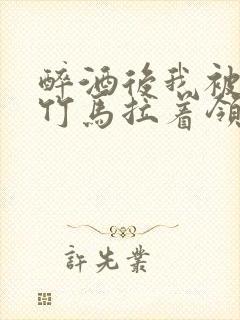 醉酒後我被
竹馬拉着領
許先業